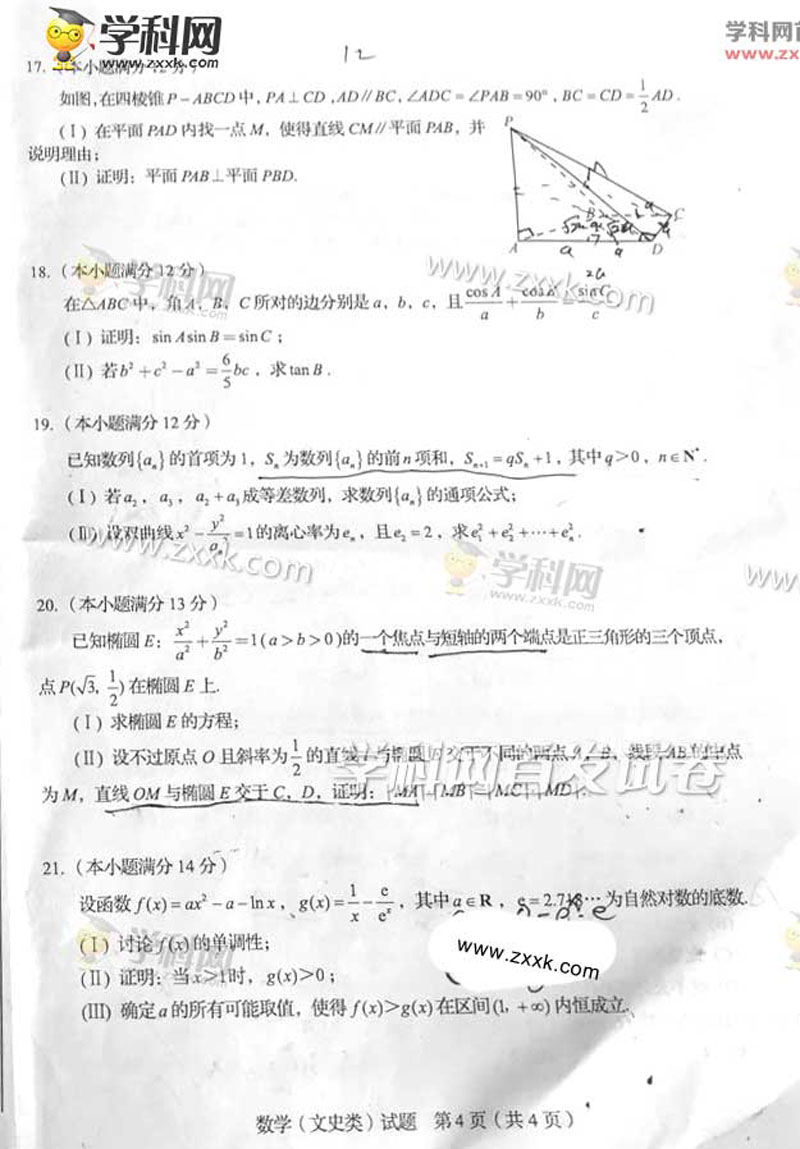 学科网
www.zxxk.com
学科网首
www.zx
12
17.（本小题满分12分）
如图,在四棱锥P－ABCD中, PA⊥CD ,AD∥BC, ∠ADC=∠PAB=90°, BC=CD=1/2 AD.
(Ⅰ) 在平面PAD内找一点M，使得直线CM∥平面PAB，并
说明理由；
(Ⅱ) 证明：平面PAB⊥平面PBD.
P
B
C
A
D
a
a
2a
18.（本小题满分12分）
在△ABC中，角A、B、C所对的边分别是a，b，c，且 cosA/a + cosB/b = sinC/c
(Ⅰ) 证明：sin Asin B=sin C；
(Ⅱ) 若b²+c²－a²=6/5 bc，求tan B.
www.zxxk.com
19.（本小题满分12分）
已知数列{aₙ}的首项为1，Sₙ为数列{aₙ}的前n项和，Sₙ₊₁=qSₙ+1，其中q>0，n∈N*.
(Ⅰ) 若a₂，a₃，a₂+a₃成等差数列，求数列{aₙ}的通项公式；
(Ⅱ) 设双曲线x²－y²/aₙ²=1的离心率为eₙ，且e₂=2，求e₁²+e₂²+⋯+eₙ².
www.zxxk.com
学科网
www.zxxk.com
www
20.（本小题满分13分）
已知椭圆E：x²/a²+y²/b²=1(a>b>0)的一个焦点与短轴的两个端点是正三角形的三个顶点，
点P(√3, 1/2)在椭圆E上.
(Ⅰ) 求椭圆E的方程；
(Ⅱ) 设不过原点O且斜率为1/2的直线l与椭圆E交于不同的两点A，B，线段AB的中点
为M，直线OM与椭圆E交于C，D，证明：|MA|·|MB|=|MC|·|MD|.
学科网首发试卷
21.（本小题满分14分）
设函数f(x)=ax²－a－ln x，g(x)=1/x－e/eˣ，其中a∈R，e=2.718⋯为自然对数的底数.
(Ⅰ) 讨论f(x)的单调性；
(Ⅱ) 证明：当x>1时，g(x)>0；
(Ⅲ) 确定a的所有可能取值，使得f(x)>g(x)在区间(1，+∞)内恒成立.
www.zxxk.com
数学（文史类）试题 第4页（共4页）